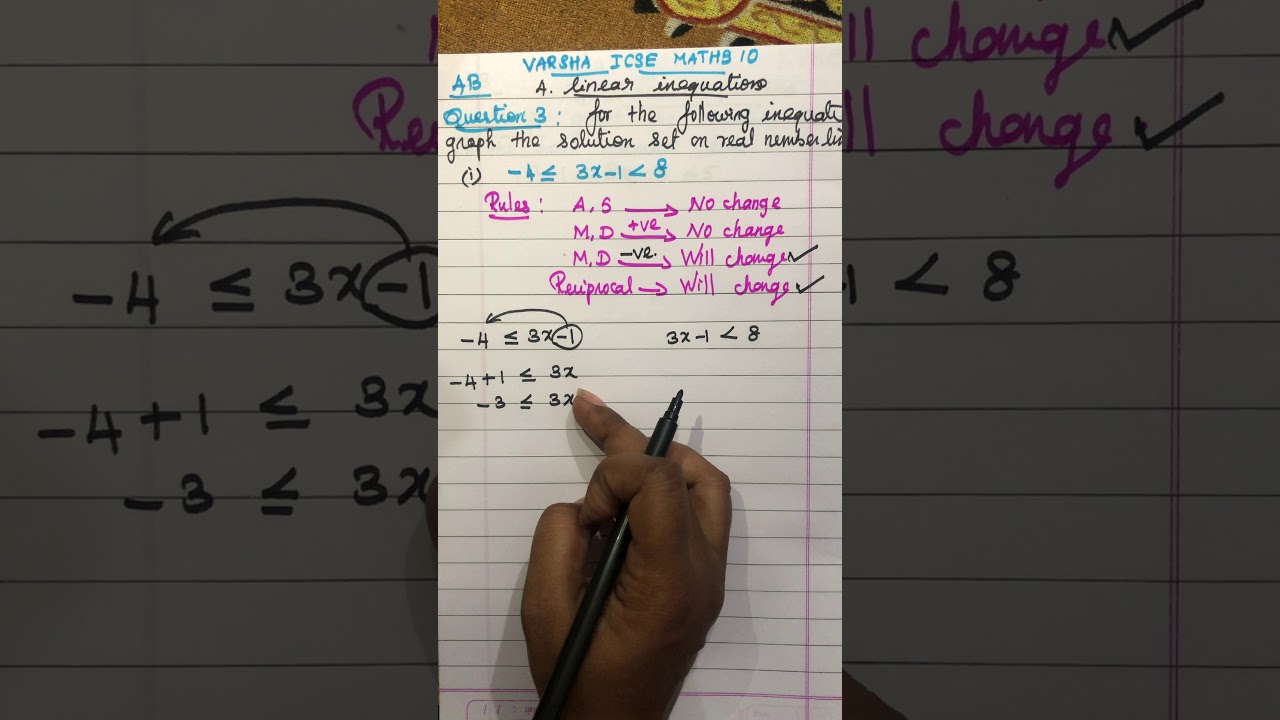 VARSHA ICSE MATHS 10
AB 4. linear inequations
Question 3 : for the following inequati
graph the solution set on real number lin
(i) -4 ≤ 3x-1 < 8
Rules : A, S → No change
M, D +ve → No change
M, D -ve. → Will change ✓
Reciprocal → Will change ✓
-4 ≤ 3x-1 3x-1 < 8
-4+1 ≤ 3x
-3 ≤ 3x
ll change ✓
Rec ll change ✓
-4 ≤ 3x-1 -1 < 8
-4+1 ≤ 3x
-3 ≤ 3x